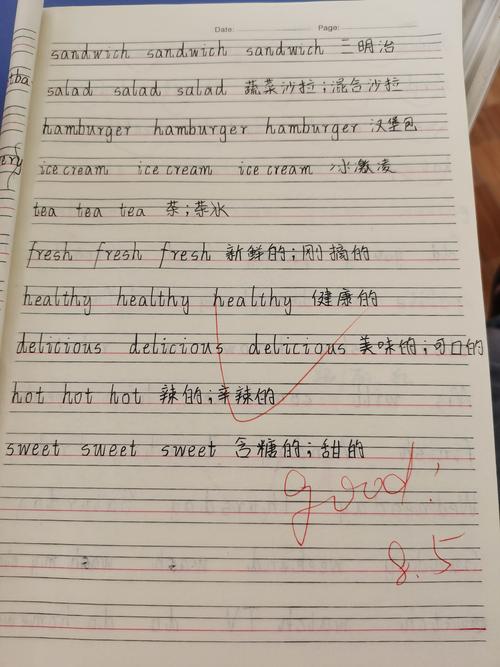 Date: Page:
sandwich sandwich sandwich 三明治
salad salad salad 蔬菜沙拉;混合沙拉
hamburger hamburger hamburger 汉堡包
ice cream ice cream ice cream 冰激凌
tea tea tea 茶;茶水
fresh fresh fresh 新鲜的;刚摘的
healthy healthy healthy 健康的
delicious delicious delicious 美味的;可口的
hot hot hot 辣的;辛辣的
sweet sweet sweet 含糖的;甜的
good!
8.5